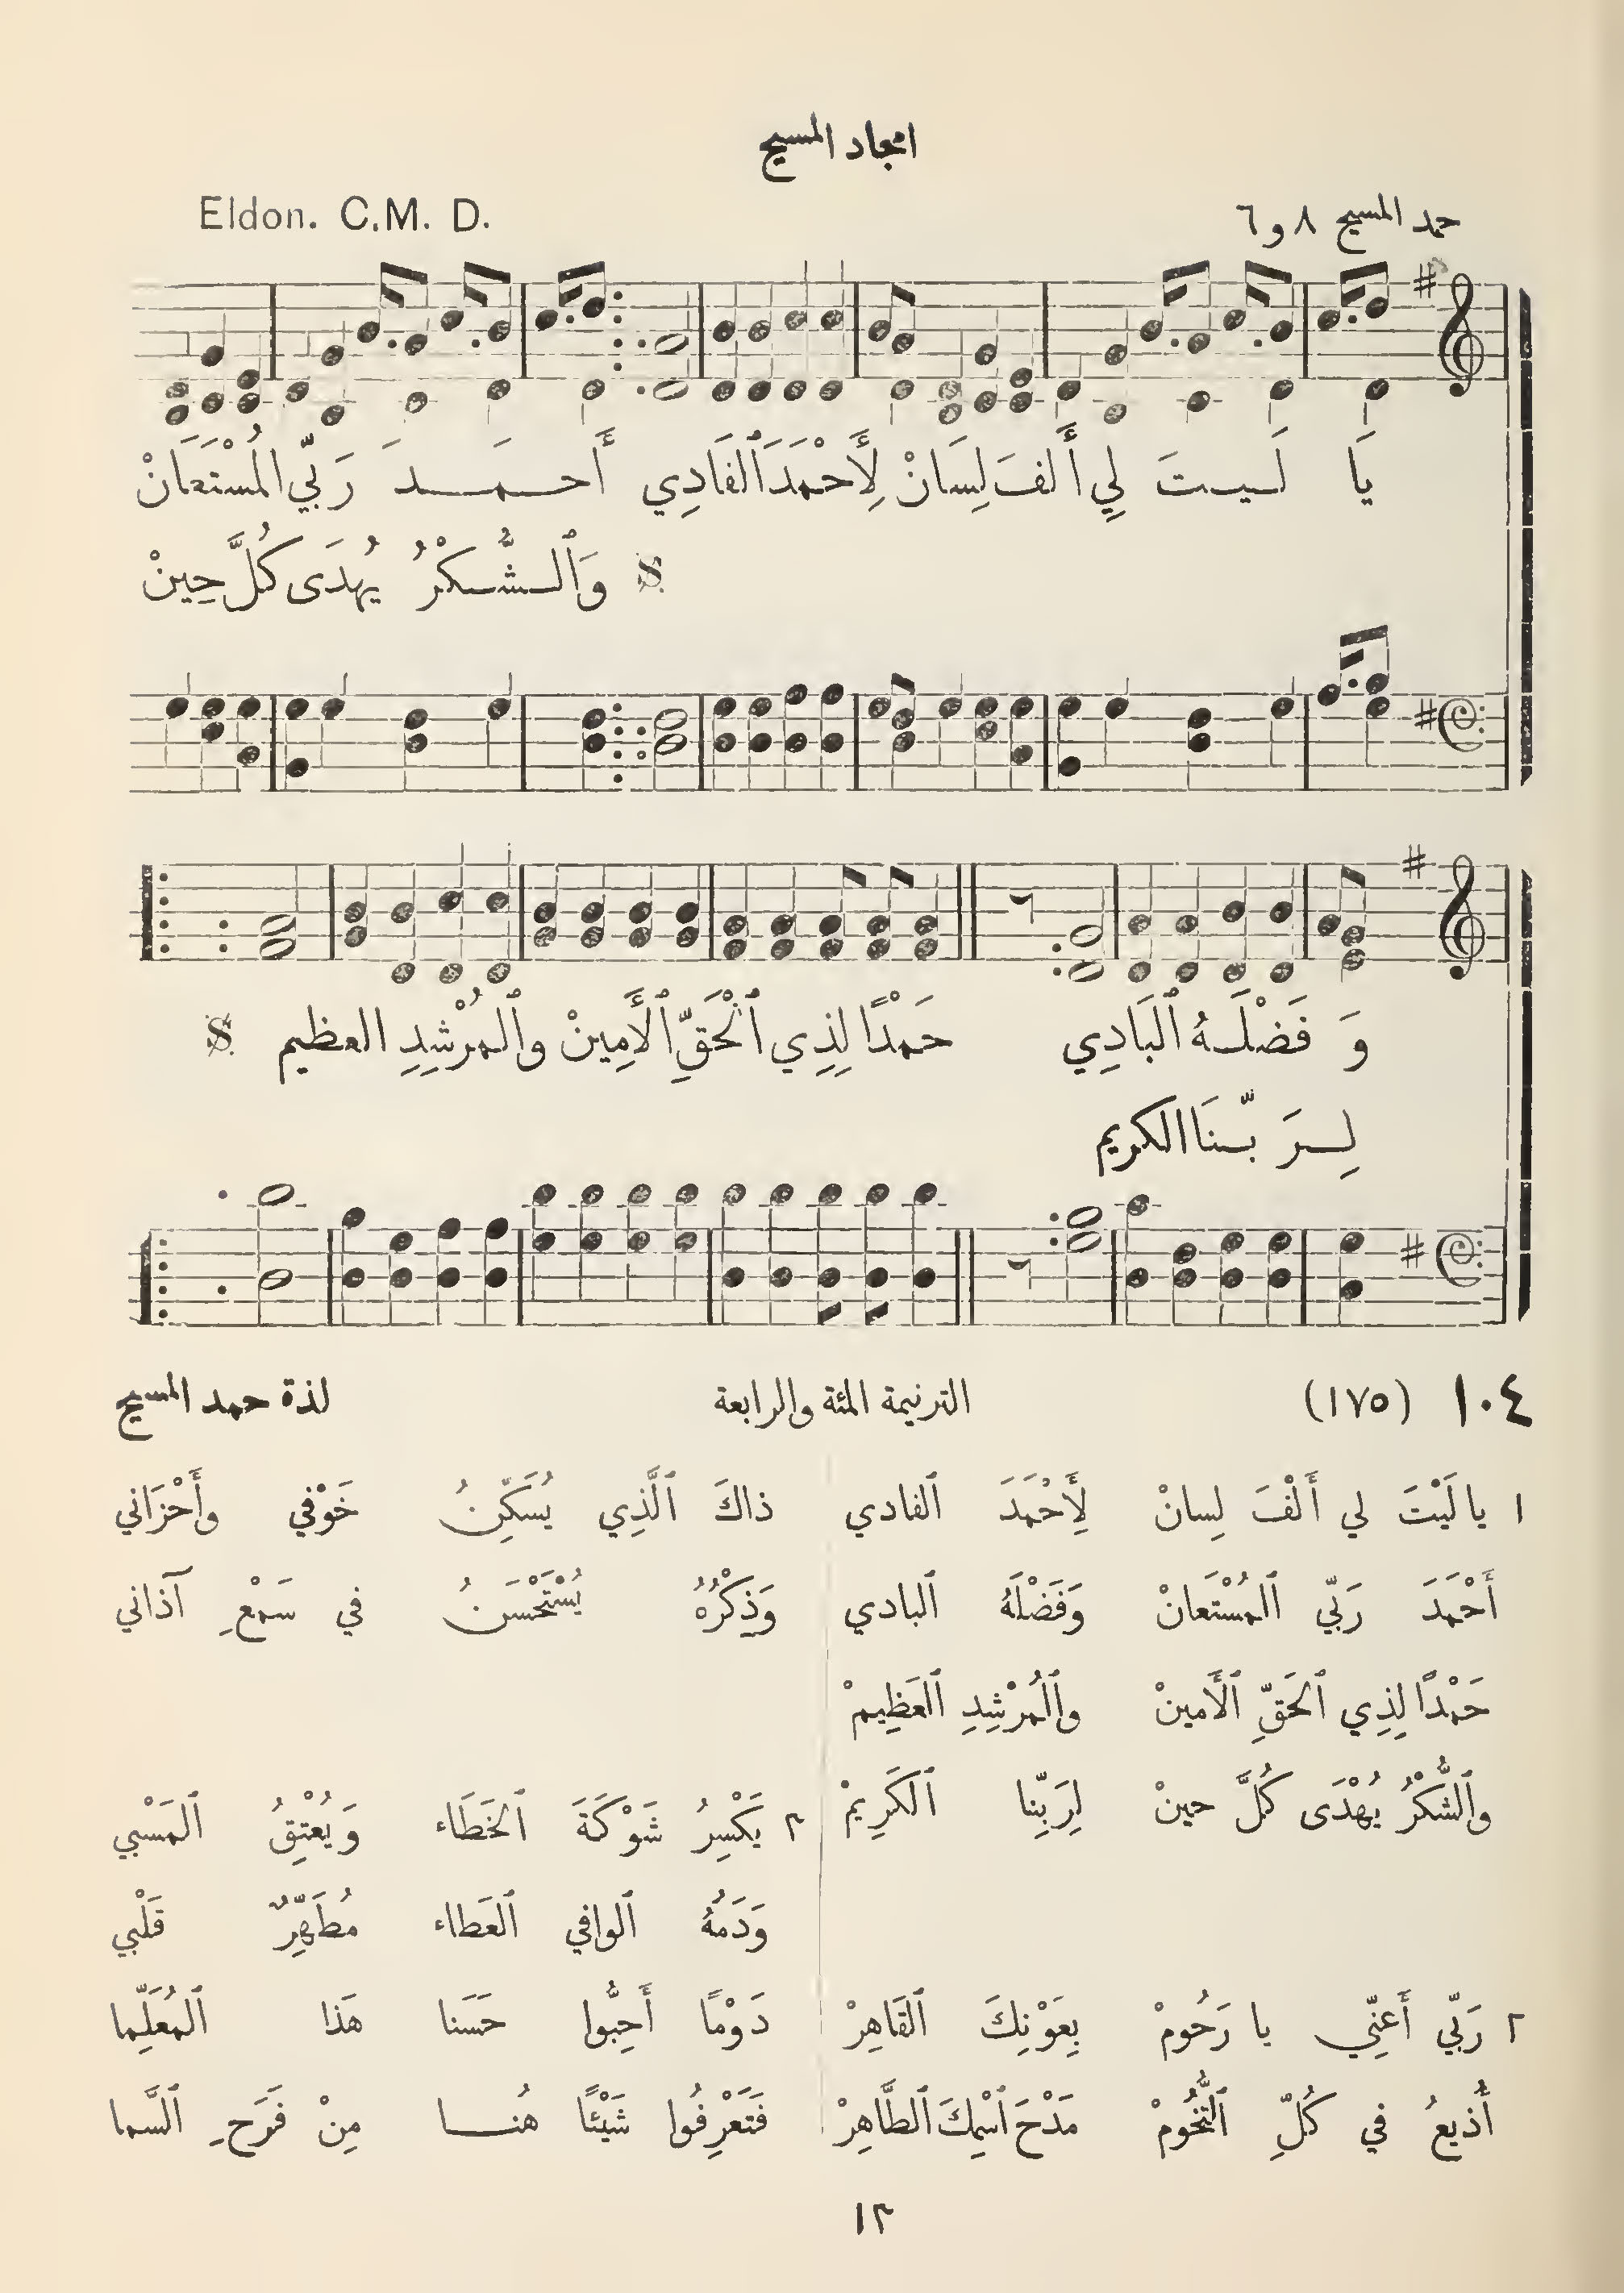 امجاد المسيح
حمد المسيح ٨ و ٦
Eldon. C.M. D.
يَا لَـيـتَ لِي أَلفَ لِسَانْ لِأَحْمَدَ ٱلفَادِي أَحـمَـدَ رَبِّي المُسْتعَانْ
وَٱلـشُّـكْرُ يُهدَى كُلَّ حِينْ
وَ فَضْلَـهُ ٱلبَادِي حَمْدًا لِذِي ٱلْحَقِّ ٱلأَمِينْ وٱلمُرْشِدِ العظيم
لِـرَ بّـنَا الكريم
١٠٤ (١٧٥) الترنيمة المئة والرابعة لذة حمد المسيح
١ يا لَيْتَ لي أَلْفَ لِسانْ لِأَحْمَدَ ٱلفادي
أَحْمَدَ رَبِّي ٱلمُسْتَعانْ وَفَضْلَهُ ٱلبادي
حَمْدًا لِذِي ٱلحَقِّ ٱلأَمينْ وٱلْمُرْشِدِ ٱلعَظِيمْ
وٱلشُّكْرُ يُهْدَى كُلَّ حينْ لِرَبِّنا ٱلكَرِيمْ
٢ رَبِّي أَعنِّي يا رَحُومْ بِعَوْنِكَ ٱلقَاهِرْ
أُذيعُ في كُلِّ ٱلتُّخُومْ مَدْحَ ٱسْمِكَ ٱلطَّاهِرْ
ذاكَ ٱلَّذِي يُسَكِّنُ خَوْفي وأَحْزَاني
وَذِكْرُهُ يُسْتَحْسَنُ في سَمْعِ آذاني
٣ يَكْسِرُ شَوْكَةَ ٱلخَطَاء وَيُعْتِقُ ٱلمَسْبي
وَدَمُهُ ٱلوافي ٱلعَطاء مُطَهِّرٌ قَلْبي
دَوْمًا أَحِبُّوا حَسَنا هَذا ٱلمُعَلِّما
فَتَعْرِفُوا شَيْئًا هُنـا مِنْ فَرَحِ ٱلسَّما
١٣